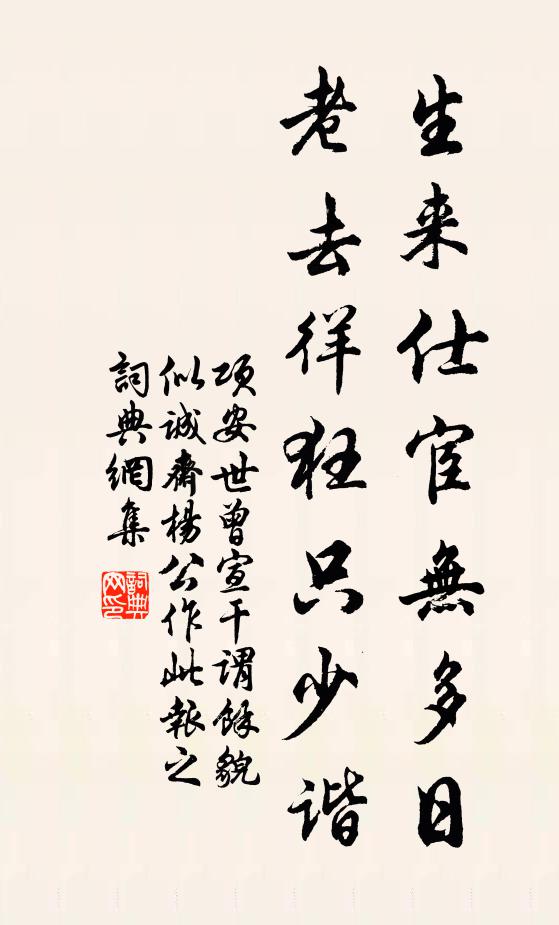 生来仕宦無多日
老去佯狂只少谐
项安世曾宣干謂餘貌
似诚齋楊公作此報之
詞典網集
詞典
网印